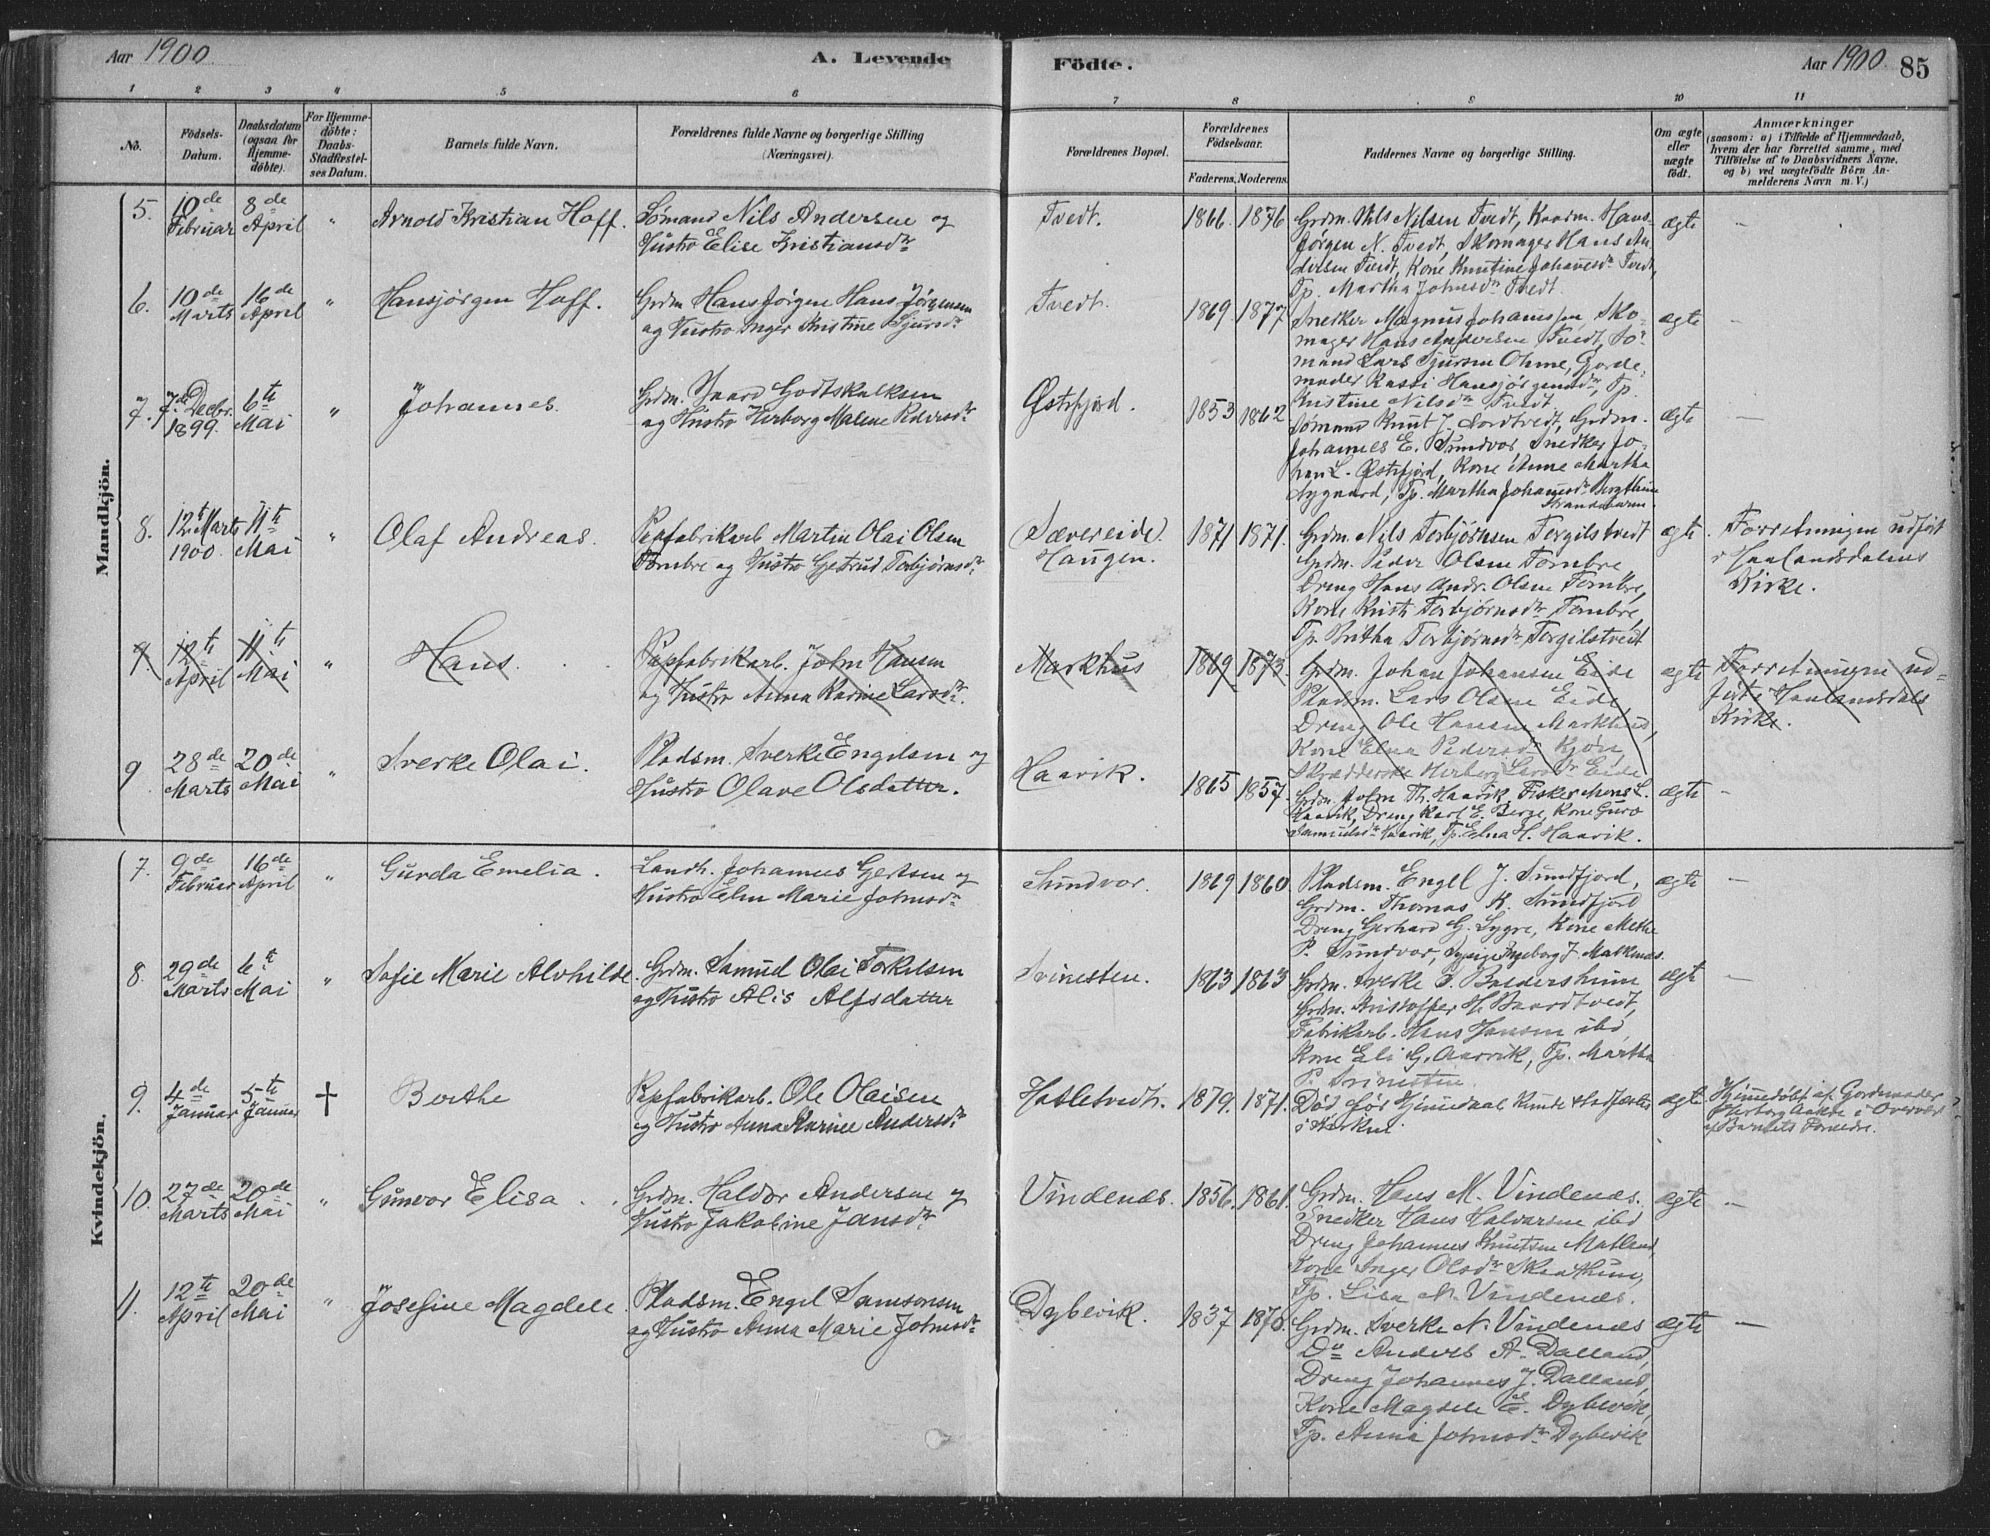 Aar 1900
A. Levende
Födte.
Aar 1900
85
1 2 3 4 5 6 7 8 9 10 11
No.
Födsels-Datum.
Daabsdatum (ogsaa for Hjemme-döbte).
For Hjemme-döbte: Daabs-Stadfæstel-ses Datum.
Barnets fulde Navn.
Forældrenes fulde Navne og borgerlige Stilling (Næringsvei).
Forældrenes Bopæl.
Forældrenes Födselsaar.
Faderens. Moderens.
Faddernes Navne og borgerlige Stilling.
Om ægte eller uægte födt.
Anmærkninger
(saasom: a) i Tilfælde af Hjemmedaab,
hvem der har forrettet samme, med
Tilföielse af to Daabsvidners Navne,
og b) ved uægtefödte Börn An-
melderens Navn m. V.)
Mandkjön.
5. 10de Februar 8de April " Arnold Kristian Hoff. Sømand Nils Andersen og
Hustro Elise Kristiansdr
Tvedt. 1866. 1876
Grdm. Nils Nilsen Tvedt, Kaarm. Hans
Jørgen N. Tvedt, Skomager Hans An-
dersen Tvedt, Kone Knutine Johannesdr Tvedt,
Tp. Martha Johnsdr Tvedt.
ægte —
6. 10de Marts 16de April " Hansjörgen Hoff. Grdm Hans Jørgen Hans Jørgensen
og Hustro Inger Kristine Sjursdr
Tvedt. 1869. 1877
Snedker Magnus Johannssen, Sko-
mager Hans Andersen Tvedt, Sø-
mand Lars Sjursen Ohme, Gorde-
moder Rassi Hansjørgensdr, Tp.
Kristine Nilsdr Tvedt.
ægte —
7. 7de Decbr. 1899. 6te Mai " Johannes. Grdm. Ivard Godtskalksen
og Hustro Herborg Malene Pedersdr
Østefjord. 1853 1862
Sømand Knut J. Nordtvedt, Grdm.
Johannes E. Sundvor, Snedker Jo-
han L. Østefjord, Kone Anne Martha
Nygaard, Tp. Martha Johannesdr Bergthun
Strandebarm.
ægte —
8. 12te Marts 1900. 11te Mai " Olaf Andreas. Papfabrikarb. Martin Olai Olsen
Tombre og Hustro Gertrud Torbjørnsdr.
Sævereide Haugen. 1871 1871.
Grdm. Nils Torbjørnsen Torgilstvedt
Grdm. Peder Olsen Tombre,
Dreng Hans Andr. Olsen Tombre,
Kone Kristi Torbjørnsdr Tombre,
Tp. Britha Torbjørnsdr Torgilstvedt
ægte
Forretningen udført
i Haalandsdalens
Kirke.
9. 12te April 11te Mai " Hans. Papfabrikarb. John Hansen
og Hustro Anna Karine Larsdr.
Markhus 1869 1873.
Grdm. Johan Johansen Eide
Pladsm. Lars Olsen Eide,
Dreng Ole Hansen Markhus,
Kone Elna Pedersdr Kjøn,
Skrædderske Herborg Larsdr Eide
ægte
Forretningen ud-
ført i Haalandsdals
Kirke.
9 28de Marts 20de Mai " Sverke Olai. Pladsm. Sverke Engelsen og
Hustro Olave Olsdatter.
Haavik. 1865 1857.
Grdm. John Th. Haavik, Fisker Mons L.
Haavik, Dreng Karl E. Berge, Kone Guro
Samuelsdr Haavik, Tp. Elna H. Haavik.
ægte —
Kvindekjön.
7. 9de Februar 16de April " Gurda Emelia. Landh. Johannes Gertsen og
Hustro Elen Marie Johnsdr
Sundvor. 1869 1860
Pladsm. Engel J. Sundfjord,
Grdm. Thomas K. Sundfjord
Dreng Gerhard G. Lygre, Kone Methe
P. Sundvor, Pige Ingeborg J. Malknes.
ægte —
8. 29de Marts 6te Mai " Sofie Marie Alvhilde. Grdm. Samuel Olai Torkelsen
og Hustro Alis Alfsdatter
Svinesten. 1863 1863
Grdm. Sverke S. Baldersheim
Grdm. Kristoffer H. Baardtvedt,
Fabrikarb. Hans Jansen ibd,
Kone Eli G. Aarvik, Tp. Martha
P. Svinesten.
ægte —
9. 4de Januar 5te Januar † Berthe Papfabrikarb. Ole Olaisen
og Hustro Anna Karine Andersdr
Hatletvedt. 1879. 1871.
Død før Hjemmedaab kunde stadfæstes
i Kirken.
ægte
Hjemmedøbt af Gordemoder
Herborg Aakre i Overvær
af Barnets Forældre.
10. 27de Marts 20de Mai " Gunvor Elisa. Grdm. Haldor Andersen og
Hustro Jakobine Jansdr
Vindenæs. 1856. 1861.
Grdm. Hans M. Vindenæs.
Snedker Hans Halvorsen ibd
Dreng Johannes Knutsen Matland,
Kone Inger Olsdr Skaathun,
Tp. Lisa N. Vindenæs.
ægte —
11. 12te April 20de Mai " Josefine Magdele. Pladsm. Engel Samsonsen
og Hustro Anna Marie Johnsdr
Dybevik. 1837
Grdm. Sverke N. Vindenæs
Do Anders A. Dalland,
Dreng Johannes J. Dalland,
Kone Magdele E. Dybevik,
Tp. Anna Johnsdr Dybevik
ægte —